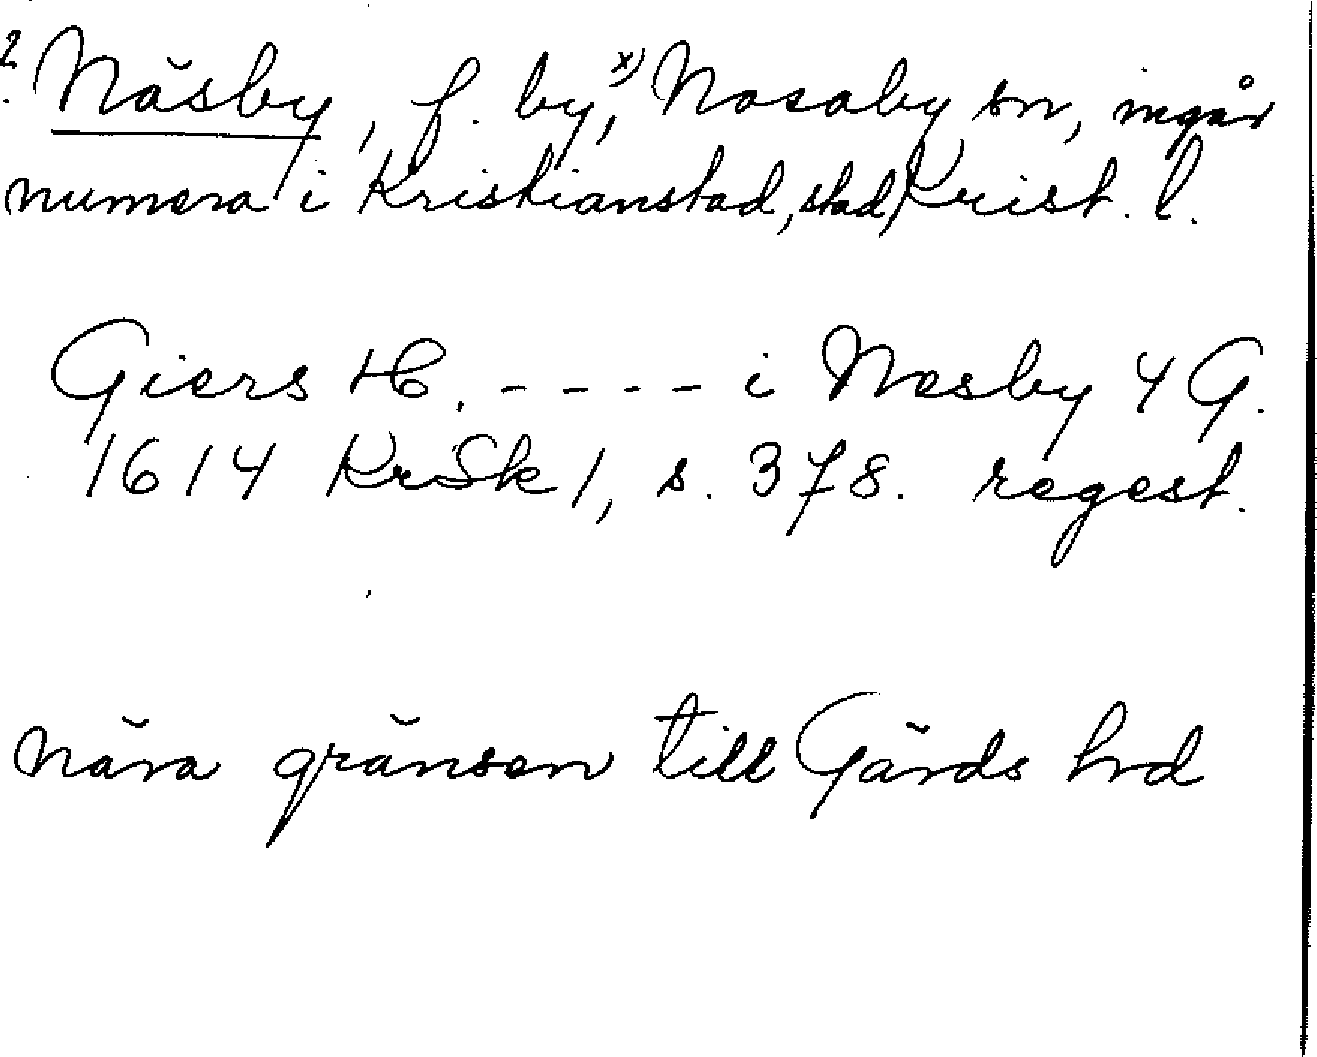 2 Näsby, f. by,x) Nosaby sn, ingår
numera i Kristianstad, stad, Krist. l.
Giers H. - - - - i Nesby 4 G.
1614 KrSk 1, s. 378. regest.
nära gränsen till Gärds hrd